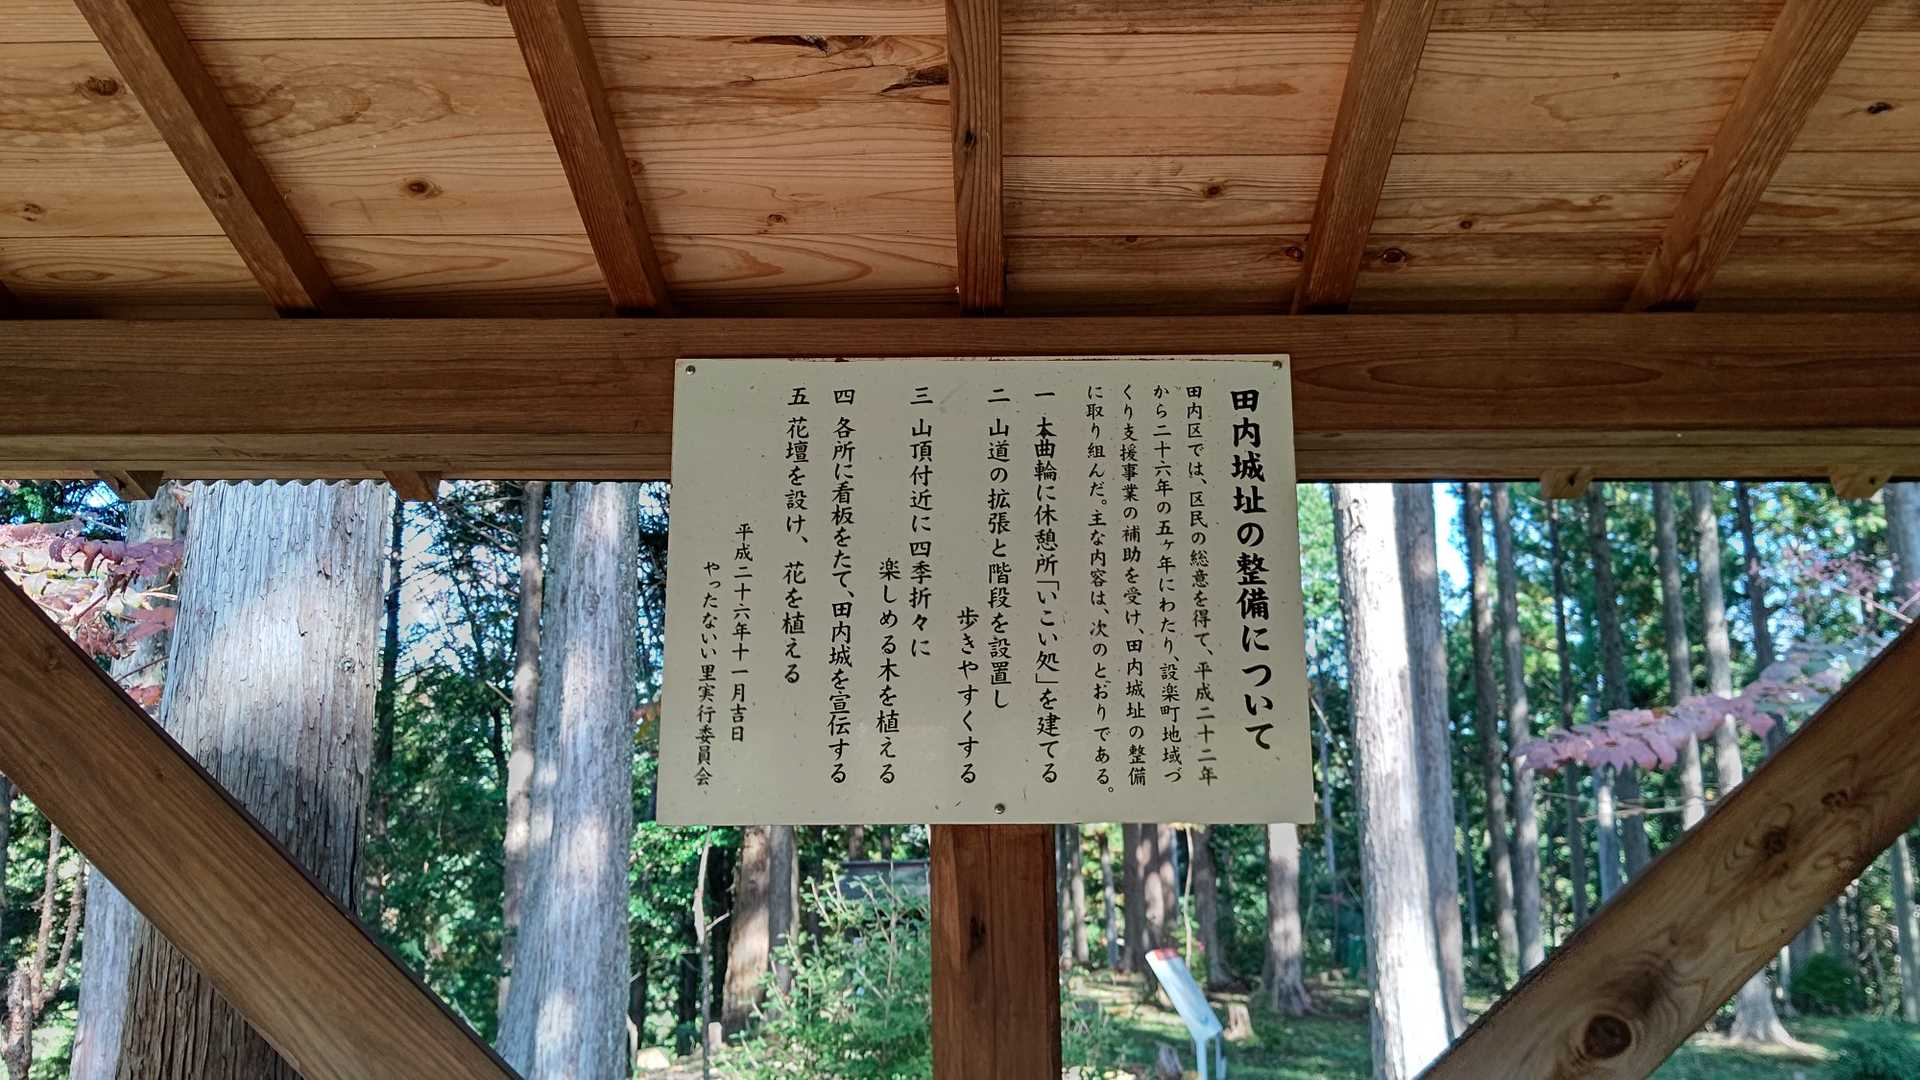 田内城址の整備について
田内区では、区民の総意を得て、平成二十二年
から二十六年の五ヶ年にわたり、設楽町地域づ
くり支援事業の補助を受け、田内城址の整備
に取り組んだ。主な内容は、次のとおりである。
一 本曲輪に休憩所「いこい処」を建てる
二 山道の拡張と階段を設置し
歩きやすくする
三 山頂付近に四季折々に
楽しめる木を植える
四 各所に看板をたて、田内城を宣伝する
五 花壇を設け、花を植える
平成二十六年十一月吉日
やったないい里実行委員会